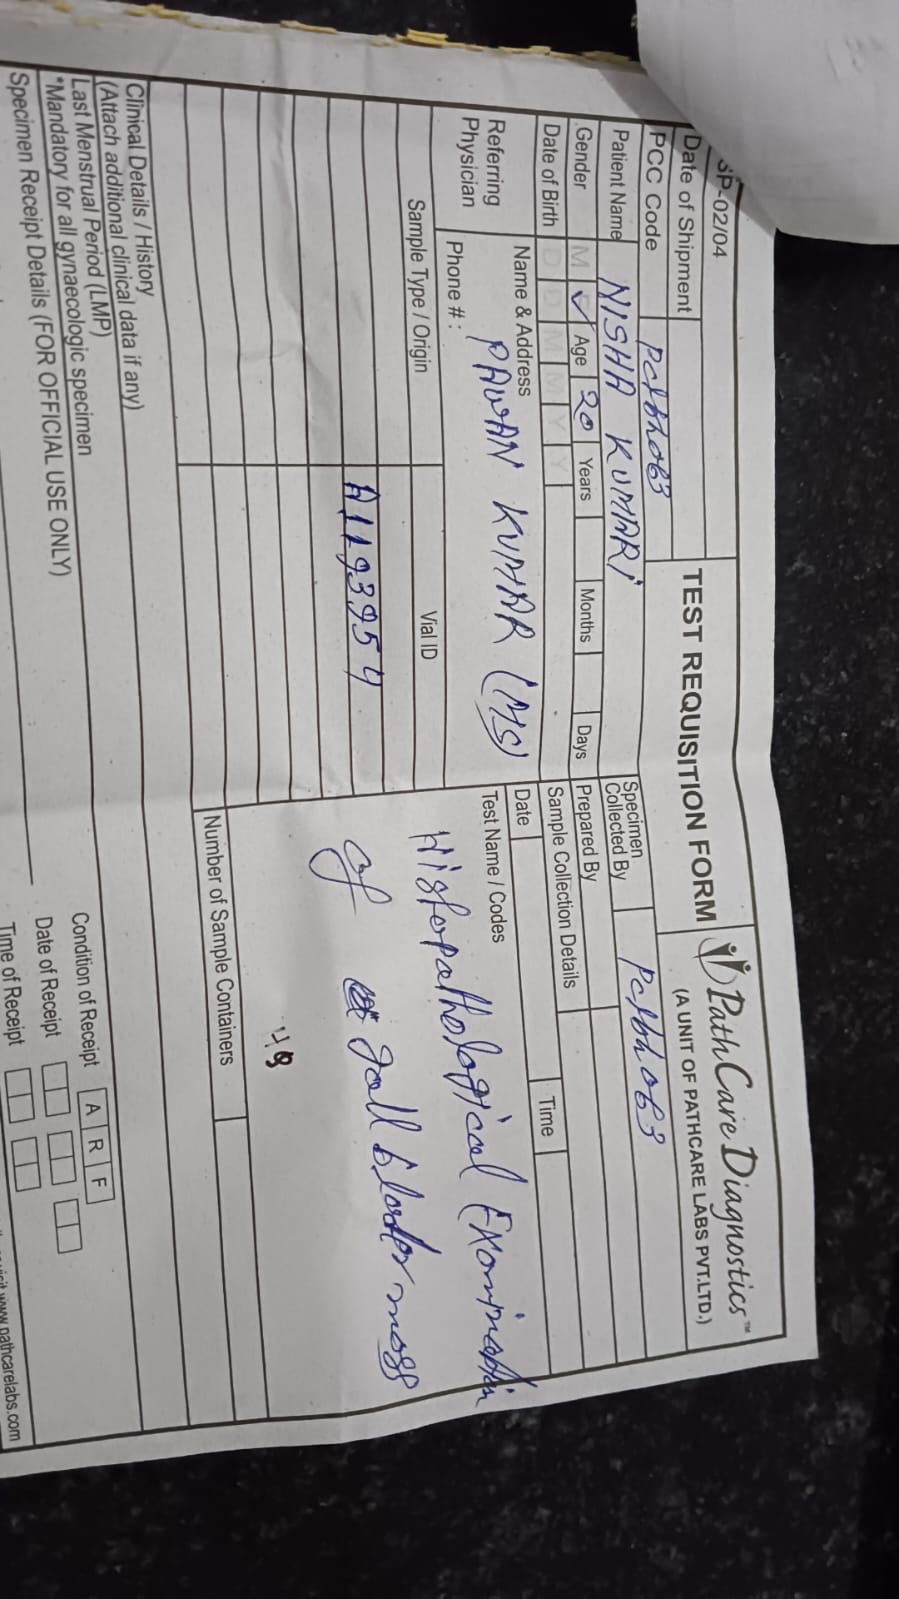 SP-02/04
TEST REQUISITION FORM
PathCare Diagnostics™
(A UNIT OF PATHCARE LABS PVT.LTD.)
Date of Shipment
PCC Code
Specimen Collected By
Patient Name NISHA KUMARI
Prepared By
Gender M ✓ Age 20 Years Months Days
Sample Collection Details
Date of Birth D D M M Y Y
Date Time
Referring Physician
Name & Address
PAWAN KUMAR (MS)
Phone # :
Test Name / Codes
Histopathological Examination
of gall bladder mass
Sample Type / Origin Vial ID
A1193954
48
Number of Sample Containers
Clinical Details / History
(Attach additional clinical data if any)
Last Menstrual Period (LMP)
*Mandatory for all gynaecologic specimen
Specimen Receipt Details (FOR OFFICIAL USE ONLY)
Condition of Receipt A R F
Date of Receipt
Time of Receipt
visit www.pathcarelabs.com